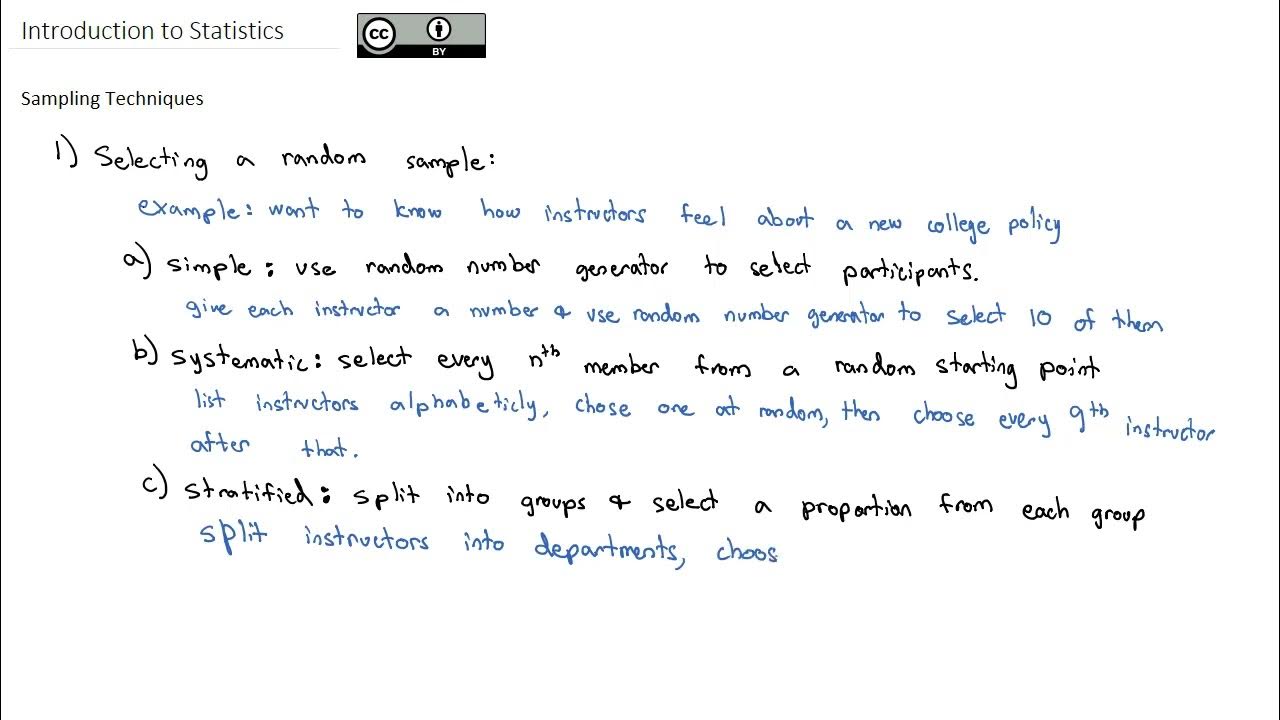 Introduction to Statistics
cc
BY
Sampling Techniques
1) Selecting a random sample:
example: want to know how instructors feel about a new college policy
a) simple: use random number generator to select participants.
give each instructor a number & use random number generator to select 10 of them
b) systematic: select every nth member from a random starting point
list instructors alphabeticly, chose one at random, then choose every 9th instructor
after that.
c) stratified: split into groups & select a proportion from each group
split instructors into departments, choos